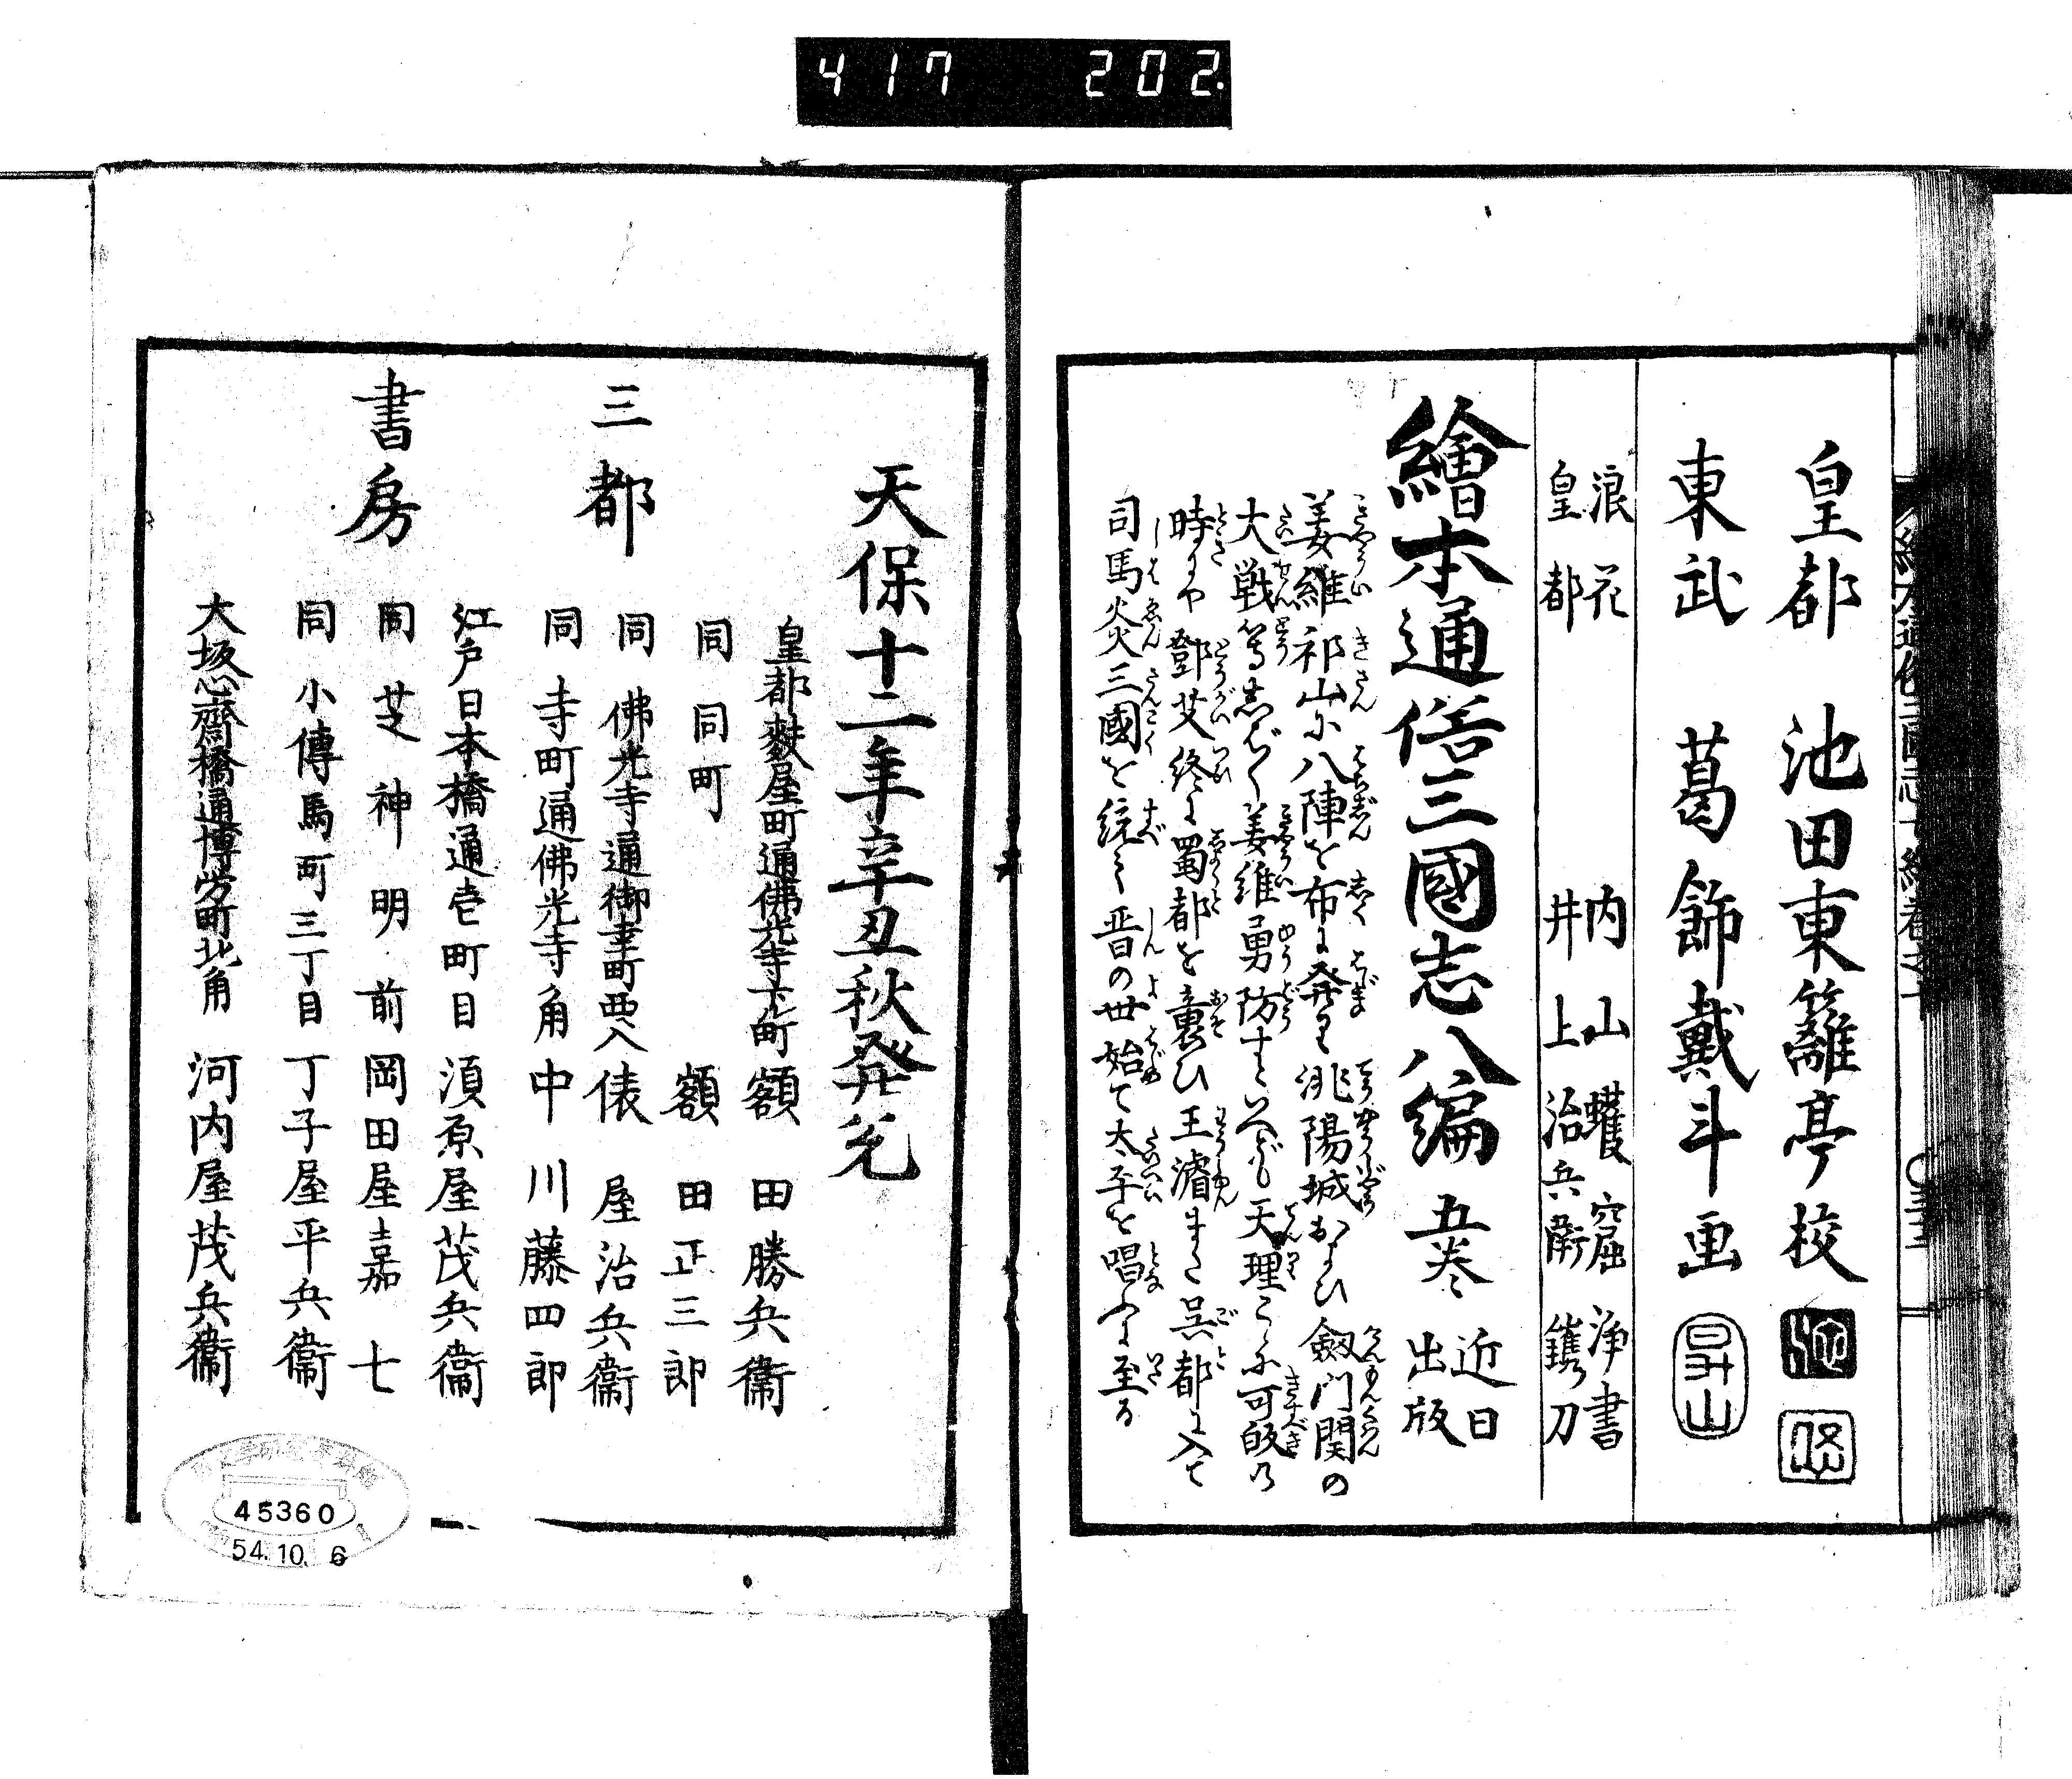 417 202.
皇都 池田東籬亭校
東武 葛飾戴斗画
浪花 内山蠖窟浄書
皇都 井上治兵衛鐫刀
繪本通俗三國志八編 五巻 近日出版
姜維祁山に八陣を布に発り洮陽城および劔門関の
大戦等しば〱姜維勇防すといへども天理こゝに可皈乃
時にや鄧艾終に蜀都を襲ひ王濬また呉都に入て
司馬炎三國を統て晋の世始て太子を唱ふに至る
天保十二年辛丑秋発兌
三都
書房
皇都麩屋町通佛光寺下ル町 額田勝兵衞
同 同町 額田正三郎
同 佛光寺通御幸町西入 俵屋治兵衞
同 寺町通佛光寺角 中川藤四郎
江戸日本橋通壱町目 須原屋茂兵衞
同 芝神明前 岡田屋嘉七
同 小傳馬町三丁目 丁子屋平兵衞
大坂心齋橋通博労町北角 河内屋茂兵衞
45360
54.10.6